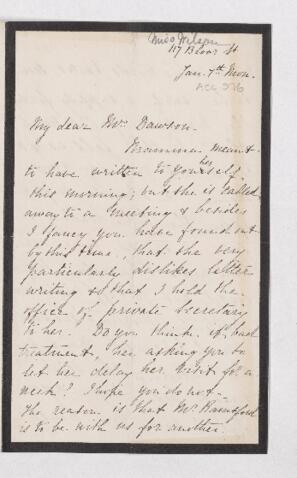 Miss Wilson
117 Bloor St
Jan. 7th Mon.
ACC 976
My dear Mr Dawson.
Mamma meant
to have written to you herself
this morning; but she is called
away to a meeting & besides
I fancy you have found out
by this time, that she very
particularly dislikes letter
writing so that I hold the
office of private Secretary
to her. Do you think it bad
treatment, her asking you to
let her delay her visit for a
week? I hope you do not.
The reason is that Mr Rainsford
is to be with us for another